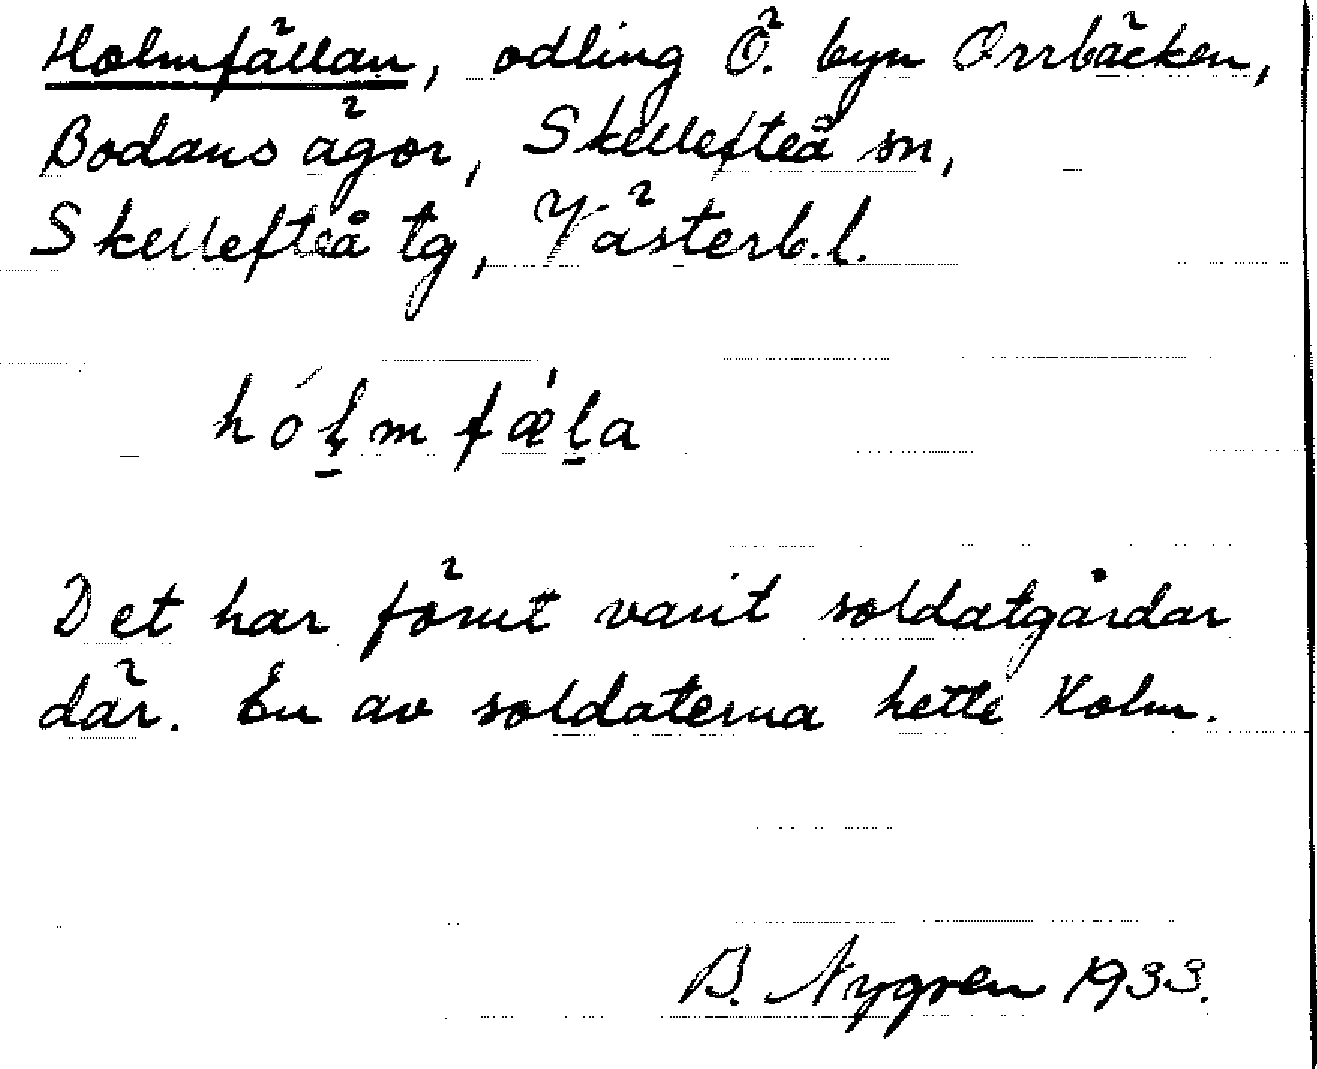 Holmfällan, odling Ö. byn Orrbäcken,
Bodans ägor, Skellefteå sn,
Skellefteå tg, Västerb.l.
hólmfæ̍la
Det har förut varit soldatgårdar
där. En av soldaterna hette Holm.
B. Nygren 1933.